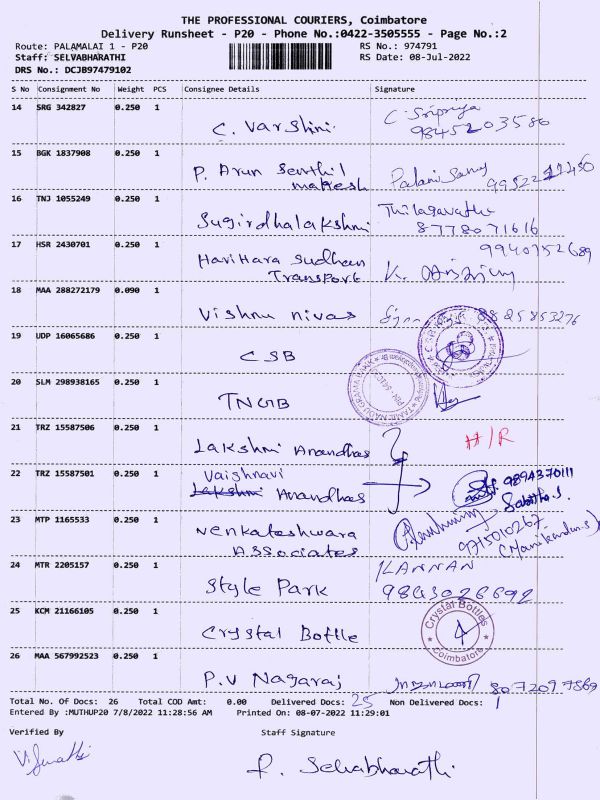 THE PROFESSIONAL COURIERS, Coimbatore
Delivery Runsheet - P20 - Phone No.:0422-3505555 - Page No.:2
Route: PALAMALAI 1 - P20 RS No.: 974791
Staff: SELVABHARATHI RS Date: 08-Jul-2022
DRS No.: DCJB97479102
S No Consignment No Weight PCS Consignee Details Signature
14 SRG 342827 0.250 1 C. Varshini C. Sripriya
9845203586
15 BGK 1837908 0.250 1 P. Arun Senthil
makesh
16 TNJ 1055249 0.250 1 Sugirdhalakshmi Thilagavathi
8778071616
17 HSR 2430701 0.250 1 Harihara Sudhan
Transport K.
9940752689
18 MAA 288272179 0.090 1 Vishnu nivas 8825853276
19 UDP 16065686 0.250 1 CSB
20 SLM 298938165 0.250 1 TNGB
TAMIL NADU GRAMA BANK
21 TRZ 15587506 0.250 1 Lakshmi Anandhas H/R
22 TRZ 15587501 0.250 1 Vaishnavi
Lakshmi Anandhas 9894370111
Sabitha.S.
23 MTP 1165533 0.250 1 Venkateshwara
Associates 9715010267
(Manikandan.S)
24 MTR 2205157 0.250 1 Style Park KANNAN
9843026692
25 KCM 21166105 0.250 1 Crystal Bottle
Crystal Bottles
Coimbatore
26 MAA 567992523 0.250 1 P.V Nagaraj 8072097869
Total No. Of Docs: 26 Total COD Amt: 0.00 Delivered Docs: 25 Non Delivered Docs: 1
Entered By :MUTHUP20 7/8/2022 11:28:56 AM Printed On: 08-07-2022 11:29:01
Verified By Staff Signature
P. Selvabharathi